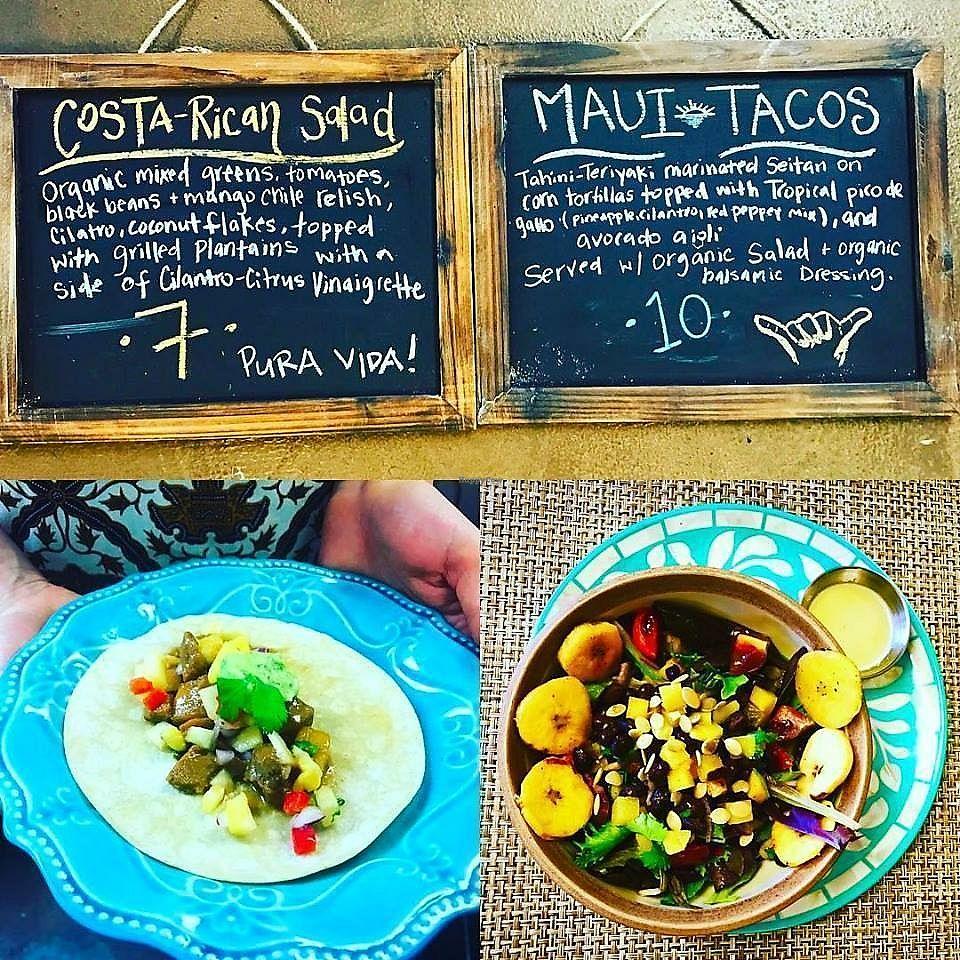 COSTA-Rican Salad
Organic mixed greens, tomatoes,
black beans + mango chile relish,
Cilatro, coconut flakes, topped
with grilled Plantains with a
side of Cilantro-Citrus Vinaigrette
·7·
PURA VIDA!
MAUI TACOS
Tahini-Teriyaki marinated Seitan on
corn tortillas topped with Tropical pico de
gallo (pineapple, cilantro, red pepper mix), and
avocado aioli
Served w/ organic Salad + organic
balsamic Dressing.
·10·